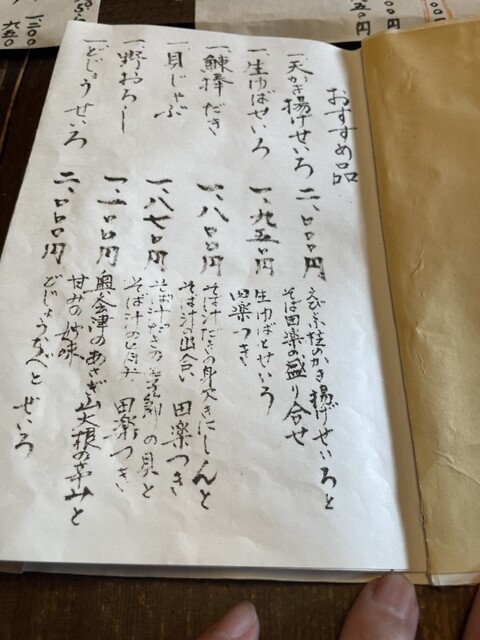 おすすめ品
一、天かき揚げせいろ 二、〇〇〇円
えび小柱のかき揚げせいろと
そば田楽の盛り合せ
一、生ゆばせいろ 一、九五〇円
生ゆばとせいろ
田楽つき
一、鰊棒だき 一、八〇〇円
そば汁だきの身欠きにしんと
そば汁の出合い 田楽つき
一、貝じゃぶ 一、八七〇円
そば汁だきの の貝と
そば汁の 田楽つき
一、野おろし 一、一〇〇円
奥会津のあざぎ大根の辛みと
甘みの妙味
一、どじょうせいろ 二、〇〇〇円
どじょうなべと せいろ
一三〇〇
九五〇